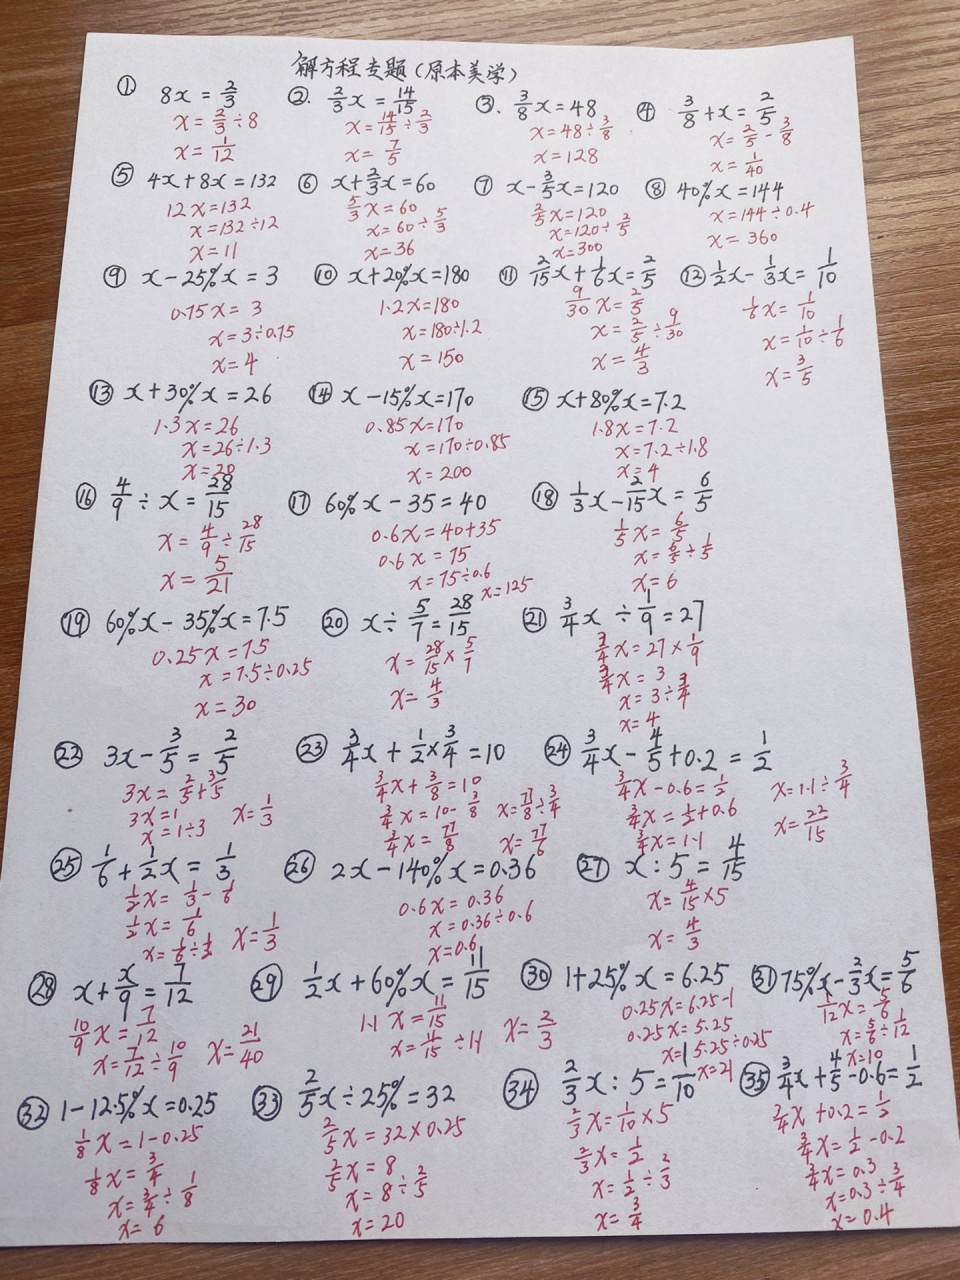 解方程专题(原本美学)
① 8x = 2/3
x = 2/3 ÷ 8
x = 1/12
②. 2/3 x = 14/15
x = 14/15 ÷ 2/3
x = 7/5
③. 3/8 x = 48
x = 48 ÷ 3/8
x = 128
④ 3/8 + x = 2/5
x = 2/5 - 3/8
x = 1/40
⑤ 4x + 8x = 132
12x = 132
x = 132 ÷ 12
x = 11
⑥ x + 2/3 x = 60
5/3 x = 60
x = 60 ÷ 5/3
x = 36
⑦ x - 3/5 x = 120
2/5 x = 120
x = 120 ÷ 2/5
x = 300
⑧ 40% x = 144
x = 144 ÷ 0.4
x = 360
⑨ x - 25% x = 3
0.75x = 3
x = 3 ÷ 0.75
x = 4
⑩ x + 20% x = 180
1.2x = 180
x = 180 ÷ 1.2
x = 150
⑪ 2/15 x + 1/6 x = 2/5
9/30 x = 2/5
x = 2/5 ÷ 9/30
x = 4/3
⑫ 1/2 x - 1/3 x = 1/10
1/6 x = 1/10
x = 1/10 ÷ 1/6
x = 3/5
⑬ x + 30% x = 26
1.3x = 26
x = 26 ÷ 1.3
x = 20
⑭ x - 15% x = 170
0.85x = 170
x = 170 ÷ 0.85
x = 200
⑮ x + 80% x = 7.2
1.8x = 7.2
x = 7.2 ÷ 1.8
x = 4
⑯ 4/9 ÷ x = 28/15
x = 4/9 ÷ 28/15
x = 5/21
⑰ 60% x - 35 = 40
0.6x = 40 + 35
0.6x = 75
x = 75 ÷ 0.6
x = 125
⑱ 1/3 x - 2/15 x = 6/5
1/5 x = 6/5
x = 6/5 ÷ 1/5
x = 6
⑲ 60% x - 35% x = 7.5
0.25x = 7.5
x = 7.5 ÷ 0.25
x = 30
⑳ x ÷ 5/7 = 28/15
x = 28/15 × 5/7
x = 4/3
㉑ 3/4 x ÷ 1/9 = 27
3/4 x = 27 × 1/9
3/4 x = 3
x = 3 ÷ 3/4
x = 4
㉒ 3x - 3/5 = 2/5
3x = 2/5 + 3/5
3x = 1
x = 1 ÷ 3
x = 1/3
㉓ 3/4 x + 1/2 × 3/4 = 10
3/4 x + 3/8 = 10
3/4 x = 10 - 3/8
3/4 x = 77/8
x = 77/8 ÷ 3/4
x = 77/6
㉔ 3/4 x - 4/5 + 0.2 = 1/2
3/4 x - 0.6 = 1/2
3/4 x = 1/2 + 0.6
3/4 x = 1.1
x = 1.1 ÷ 3/4
x = 22/15
㉕ 1/6 + 1/2 x = 1/3
1/2 x = 1/3 - 1/6
1/2 x = 1/6
x = 1/6 ÷ 1/2
x = 1/3
㉖ 2x - 140% x = 0.36
0.6x = 0.36
x = 0.36 ÷ 0.6
x = 0.6
㉗ x : 5 = 4/15
x = 4/15 × 5
x = 4/3
㉘ x + x/9 = 7/12
10/9 x = 7/12
x = 7/12 ÷ 10/9
x = 21/40
㉙ 1/2 x + 60% x = 11/15
1.1x = 11/15
x = 11/15 ÷ 1.1
x = 2/3
㉚ 1 + 25% x = 6.25
0.25x = 6.25 - 1
0.25x = 5.25
x = 5.25 ÷ 0.25
x = 21
㉛ 75% x - 2/3 x = 5/6
1/12 x = 5/6
x = 5/6 ÷ 1/12
x = 10
㉜ 1 - 12.5% x = 0.25
1/8 x = 1 - 0.25
1/8 x = 3/4
x = 3/4 ÷ 1/8
x = 6
㉝ 2/5 x ÷ 25% = 32
2/5 x = 32 × 0.25
2/5 x = 8
x = 8 ÷ 2/5
x = 20
㉞ 2/3 x : 5 = 1/10
2/3 x = 1/10 × 5
2/3 x = 1/2
x = 1/2 ÷ 2/3
x = 3/4
㉟ 3/4 x + 4/5 - 0.6 = 1/2
3/4 x + 0.2 = 1/2
3/4 x = 1/2 - 0.2
3/4 x = 0.3
x = 0.3 ÷ 3/4
x = 0.4